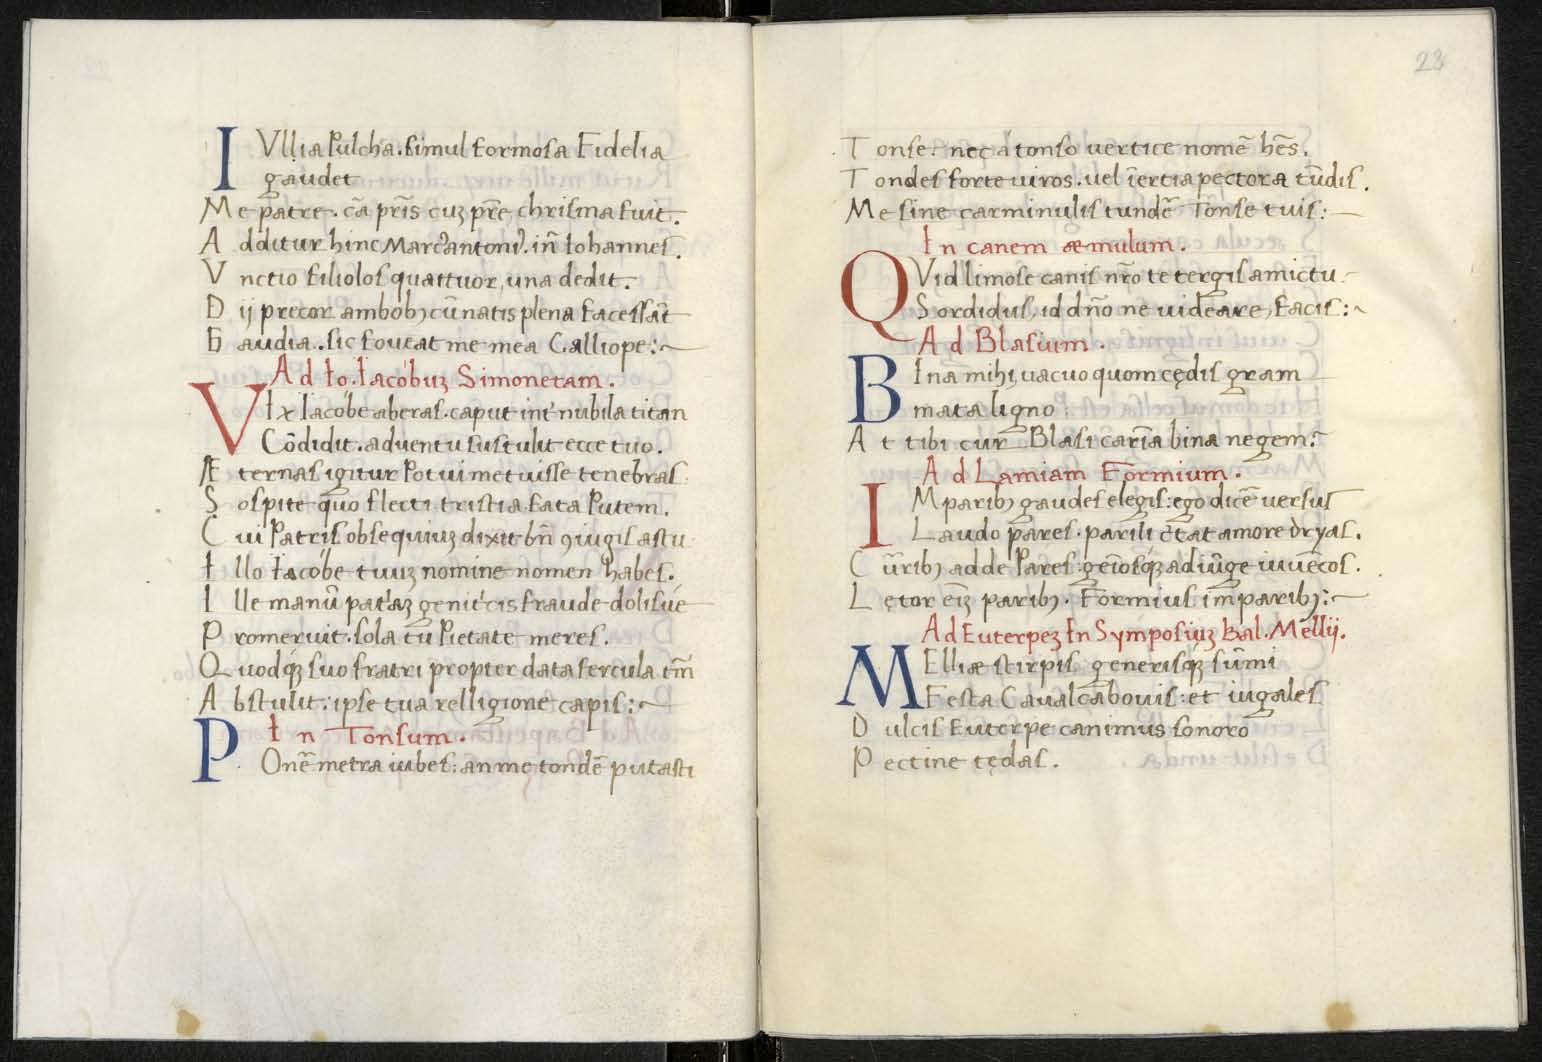 IVllia Pulchᷓa. simul formosa Fidelia
gaudet
Me patre. cā pr̄is cuꝫ pr̄e chrisma fuit.
Additur hinc Marc'antoni'. in̄ Iohannes.
Vnctio filiolos quattuor, una dedit.
Dij precor ambobꝫ cū natis plena facessāt
Gaudia. sic foveat me mea Calliope:~
Ad Io. Iacóbuꝫ Simonetam.
VIx Iacóbe aberas. caput int' nubila titan
Cōdidit. adventu sustulit ecce tuo.
Æternas igitur Potui metuisse tenebras
Sospite quo flecti tristia fata Putem.
Cui Patris obsequiuꝫ dixit bn̄ ꝯiugis astu
Illo Iacóbe tuuꝫ nomine nomen habes.
Ille manū pat'aꝫ genit'cis fraude dolisve
Promeruit. sola tu Pietate meres.
Quodqꝫ suo fratri propter data fercula tm̄
Abstulit: ipse tua relligione capis:~
In Tonsum.
POnē metra iubes: an me tondē putasti
28
Tonse: nec á tonso vertice nomē hēs.
Tondes forte viros. vel īertia pectora tūdis.
Me sine carminulis tundē Tonse tuis:~
In canem æmulum.
QVid limose canis nr̄o te tergis amictu
Sordidus, id dn̄o ne videare, facis:~
Ad Blasium.
BIna mihi vacuo quom cędis gram
mata ligno:
At tibi cur Blasi carīa bina negem?
Ad Lamiam Formium.
IMparibꝫ gaudes elegis: ego dicē versus
Laudo pares. parili c̄tat amore dryas.
Cūribꝫ adde Pares: geīosqꝫ adiūge iuvēcos.
Lętor eīꝫ paribꝫ. Formius im̄paribꝫ:~
Ad Euterpeꝫ In Symposiuꝫ Bal. Mellij.
MElliæ stirpis generisqꝫ sūmi
Festa Cavalcabovis: et iugales
Dulcis Euterpe canimus sonoro
Pectine tędas.